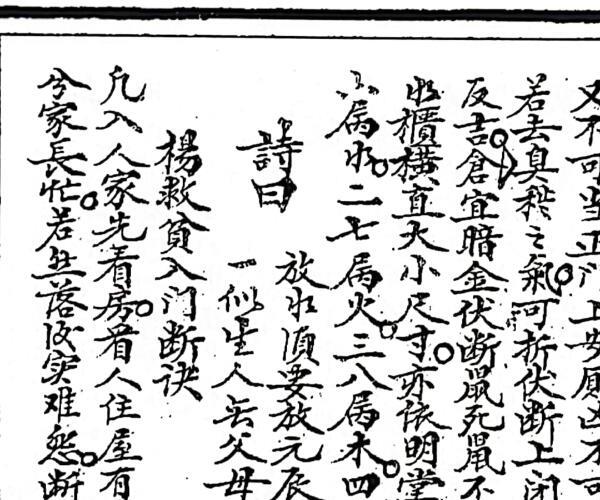 又不可当正门上安厕凶不可
若去臭秽之氣可折伏断上闭
反吉倉宜暗金伏断鼠死鼠不
水櫃橫直大小尺寸亦依明堂
六属水二七属火三八属木四
放水須要放元辰
詩曰
一似生人無父母
楊救貧入门断诀
凡入人家先看房看人住屋有
兮家長忙若無落後实难怨断